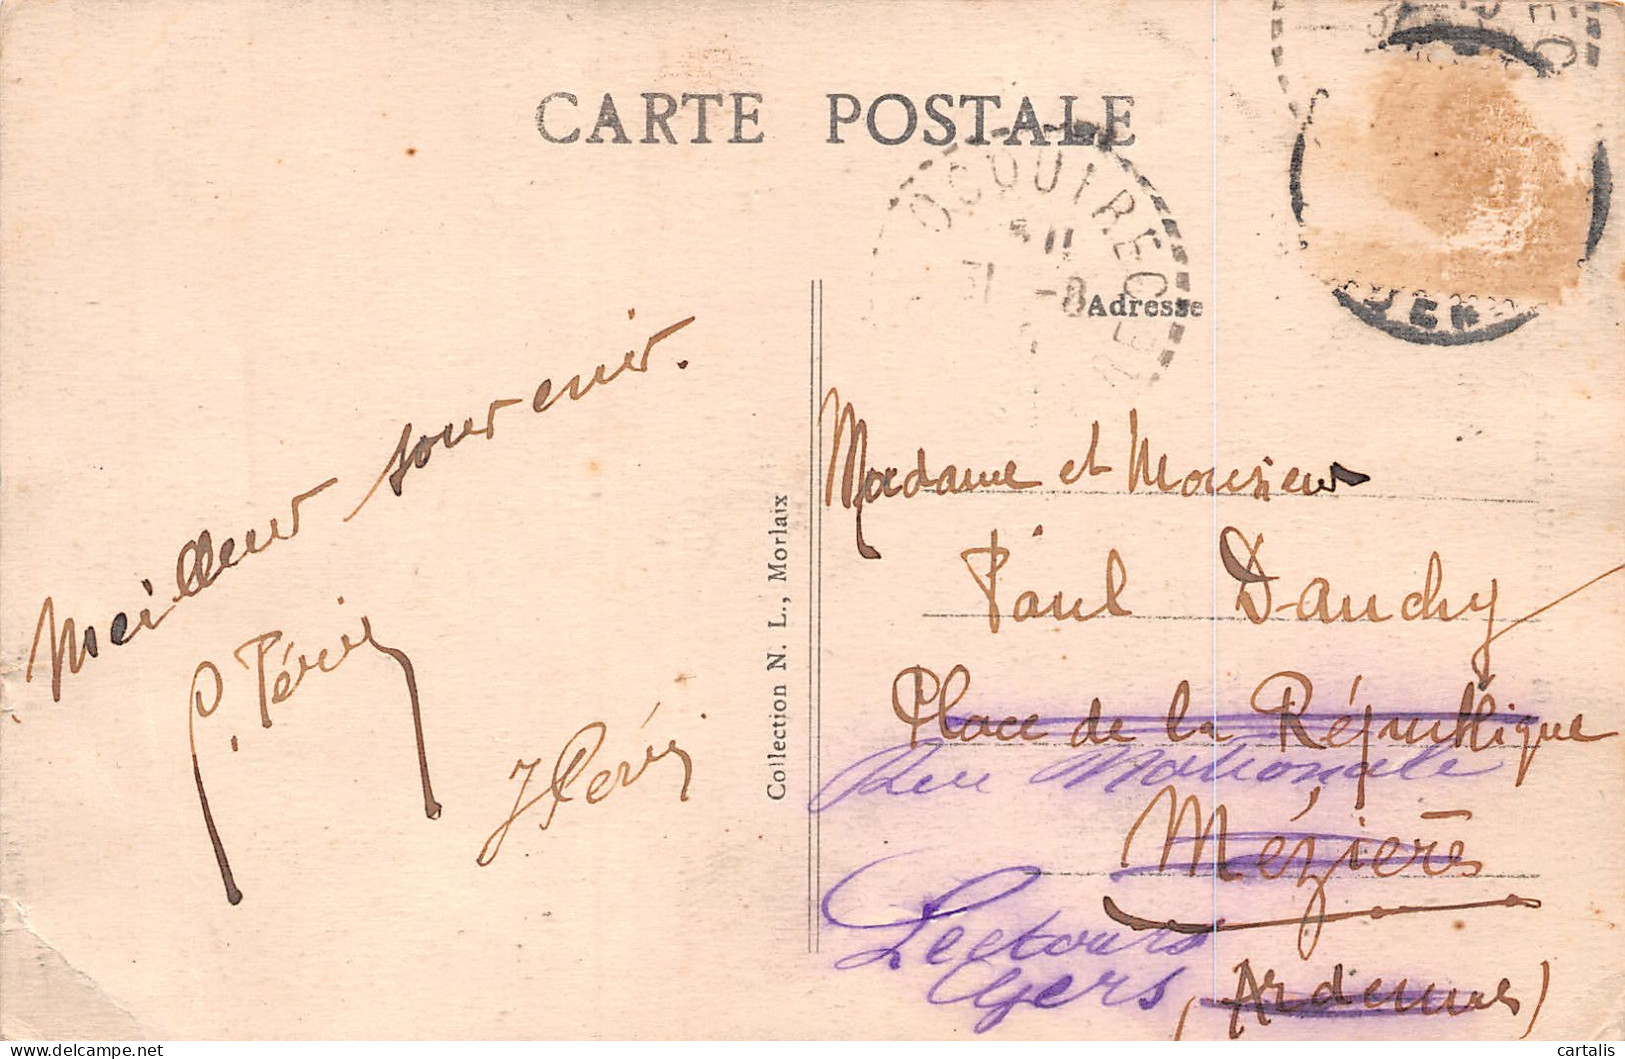 CARTE POSTALE
OCQUIREC
11
31 -8
Adresse
Meilleur souvenir.
Collection N. L., Morlaix
Madame et Monsieur
Paul Dauchy
Place de la République
Rue Nationale
Mézières
Lectoure
Gers
(Ardennes)
delcampe.net
cartalis